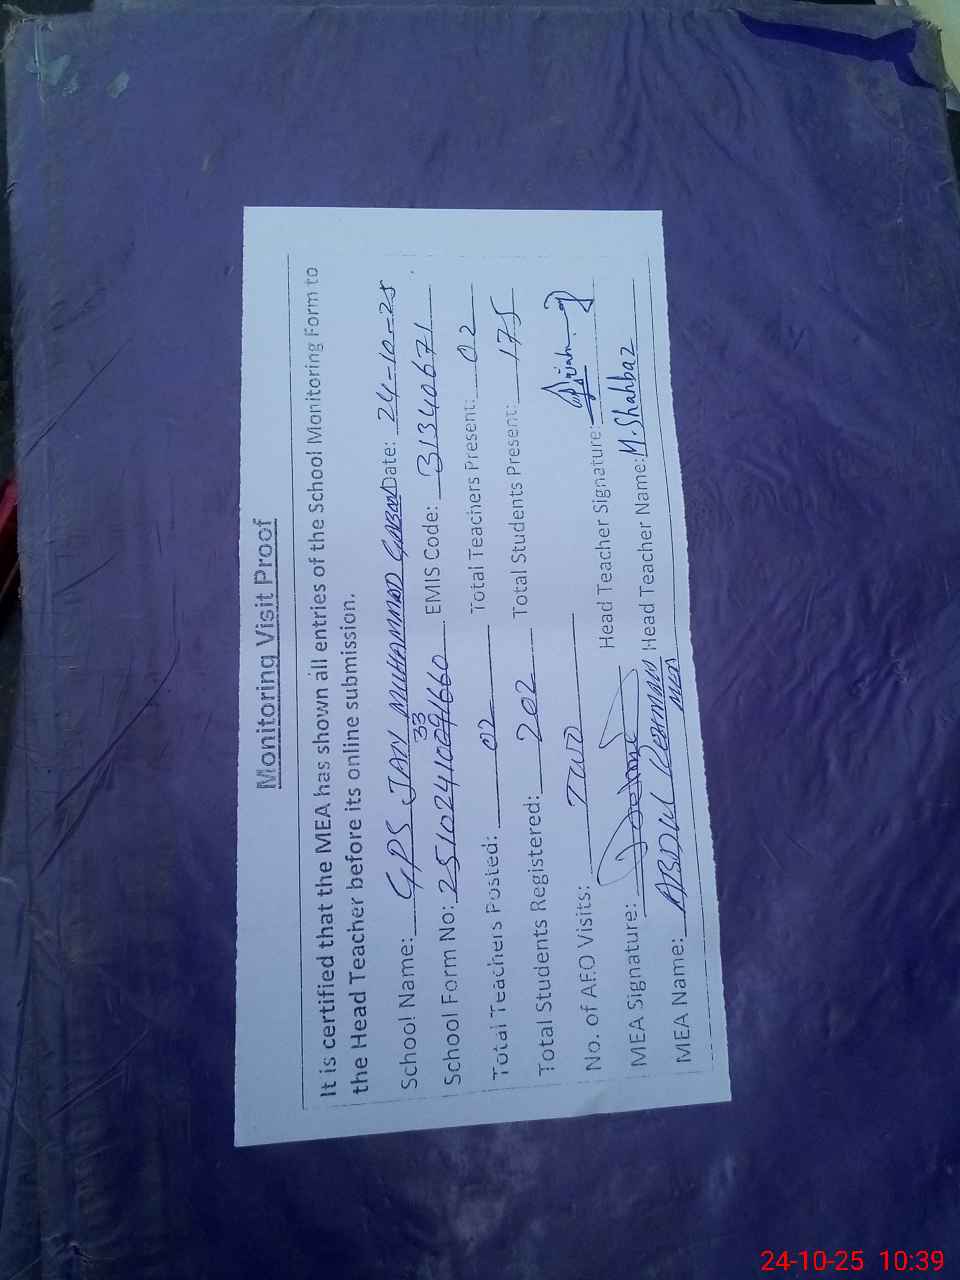 Monitoring Visit Proof
It is certified that the MEA has shown all entries of the School Monitoring Form to
the Head Teacher before its online submission.
School Name: GPS JAN MUHAMMAD Date: 24-10-25
33
School Form No: 251024100 1660 EMIS Code: 31340671
Total Teachers Posted: 02 Total Teachers Present: 02
Total Students Registered: 202 Total Students Present: 175
No. of AEO Visits: TWO
MEA Signature: Head Teacher Signature:
MEA Name: ABDUL REHMAN Head Teacher Name: M.Shahbaz
MEA
24-10-25 10:39